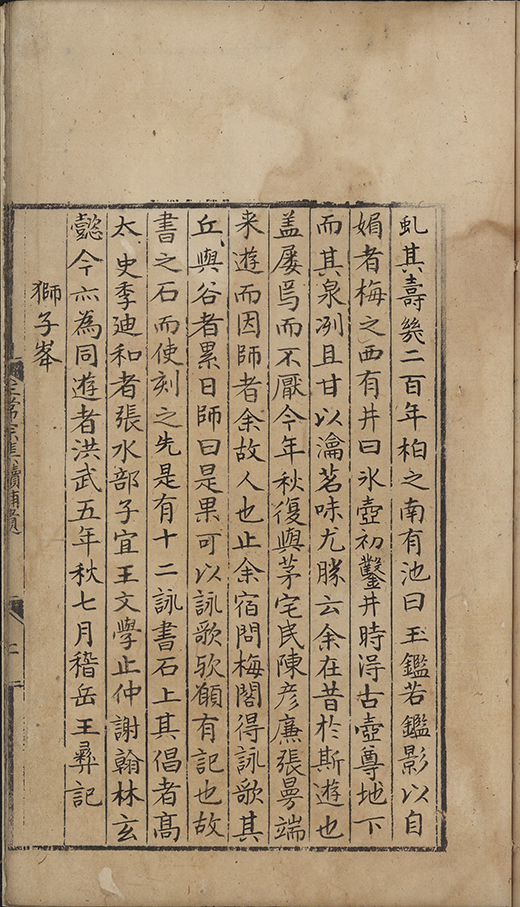 虬其壽幾二百年柏之南有池曰玉鑑若鑑影以自
媚者梅之西有井曰氷壺初鑿井時淂古壺尊地下
而其泉洌且甘以瀹茗味尤勝云余在昔於斯遊也
盖屡焉而不厭今年秋復與茅宅民陳彦廉張㬅端
来遊而因師者余故人也止余宿問梅閣得詠歌其
丘與谷者累日師曰是果可以詠歌歟願有記也故
書之石而使刻之先是有十二詠書石上其倡者髙
太史季廸和者張水部子宜王文學止仲謝翰林玄
懿今亦為同遊者洪武五年秋七月稽岳王彝記
獅子峯